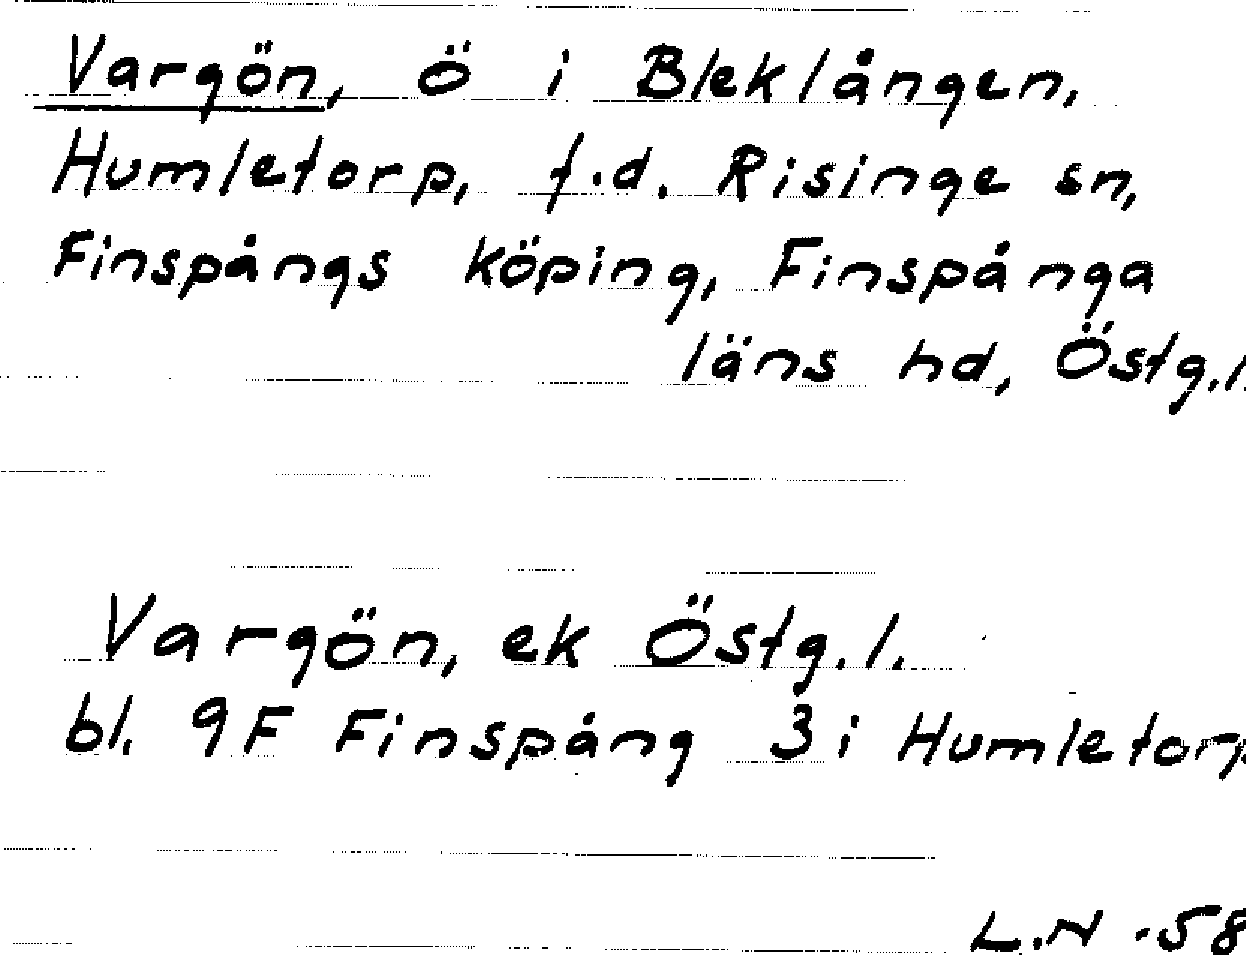 Vargön, ö i Bleklången,
Humletorp, f.d. Risinge sn,
Finspångs köping, Finspånga
läns hd, Östg.l.
Vargön, ek Östg.l.
bl. 9F Finspång 3 i Humletorp
L.N -58